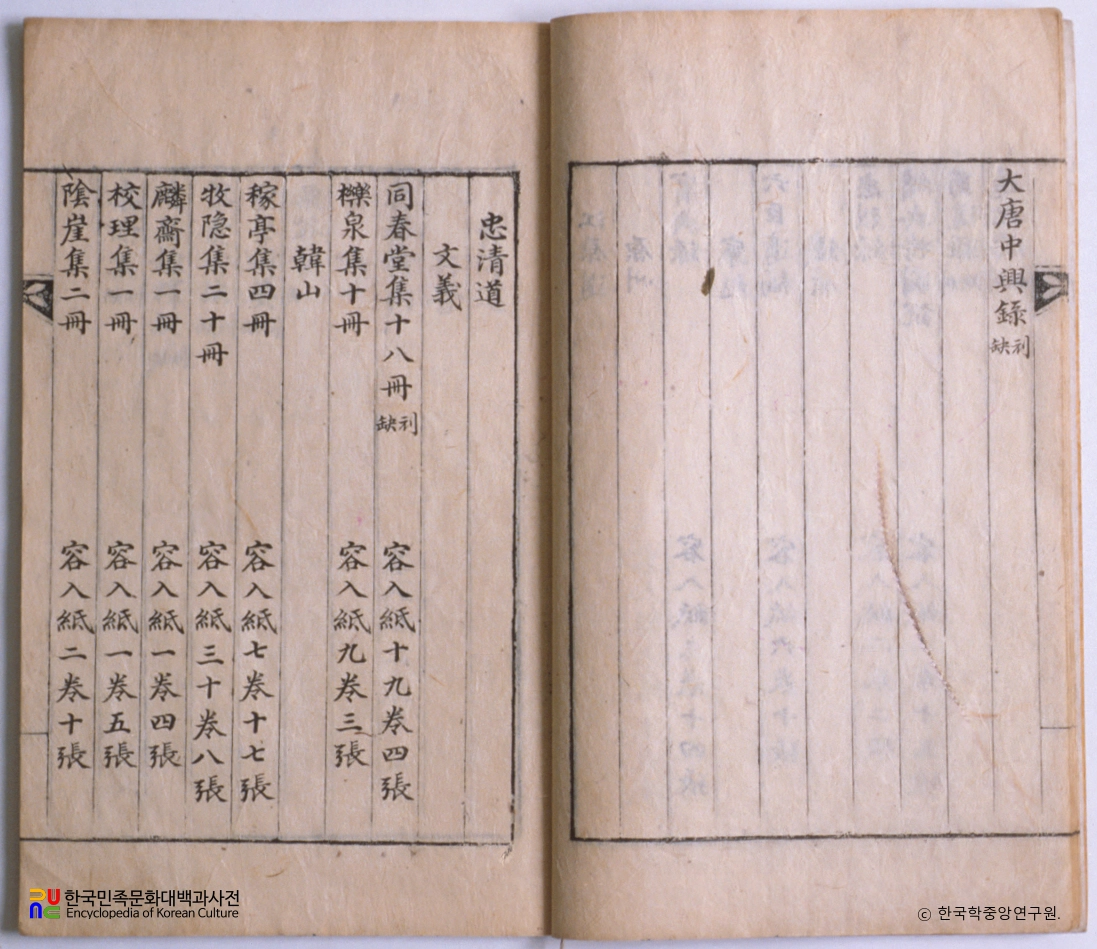 大唐中興錄 刓缺
忠清道
文義
同春堂集十八冊 刓缺 容入紙十九卷四張
櫟泉集十冊 容入紙九卷三張
韓山
稼亭集四冊 容入紙七卷十七張
牧隐集二十冊 容入紙三十卷八張
麟齋集一冊 容入紙一卷四張
校理集一冊 容入紙一卷五張
陰崖集二冊 容入紙二卷十張
한국민족문화대백과사전
Encyclopedia of Korean Culture
© 한국학중앙연구원.